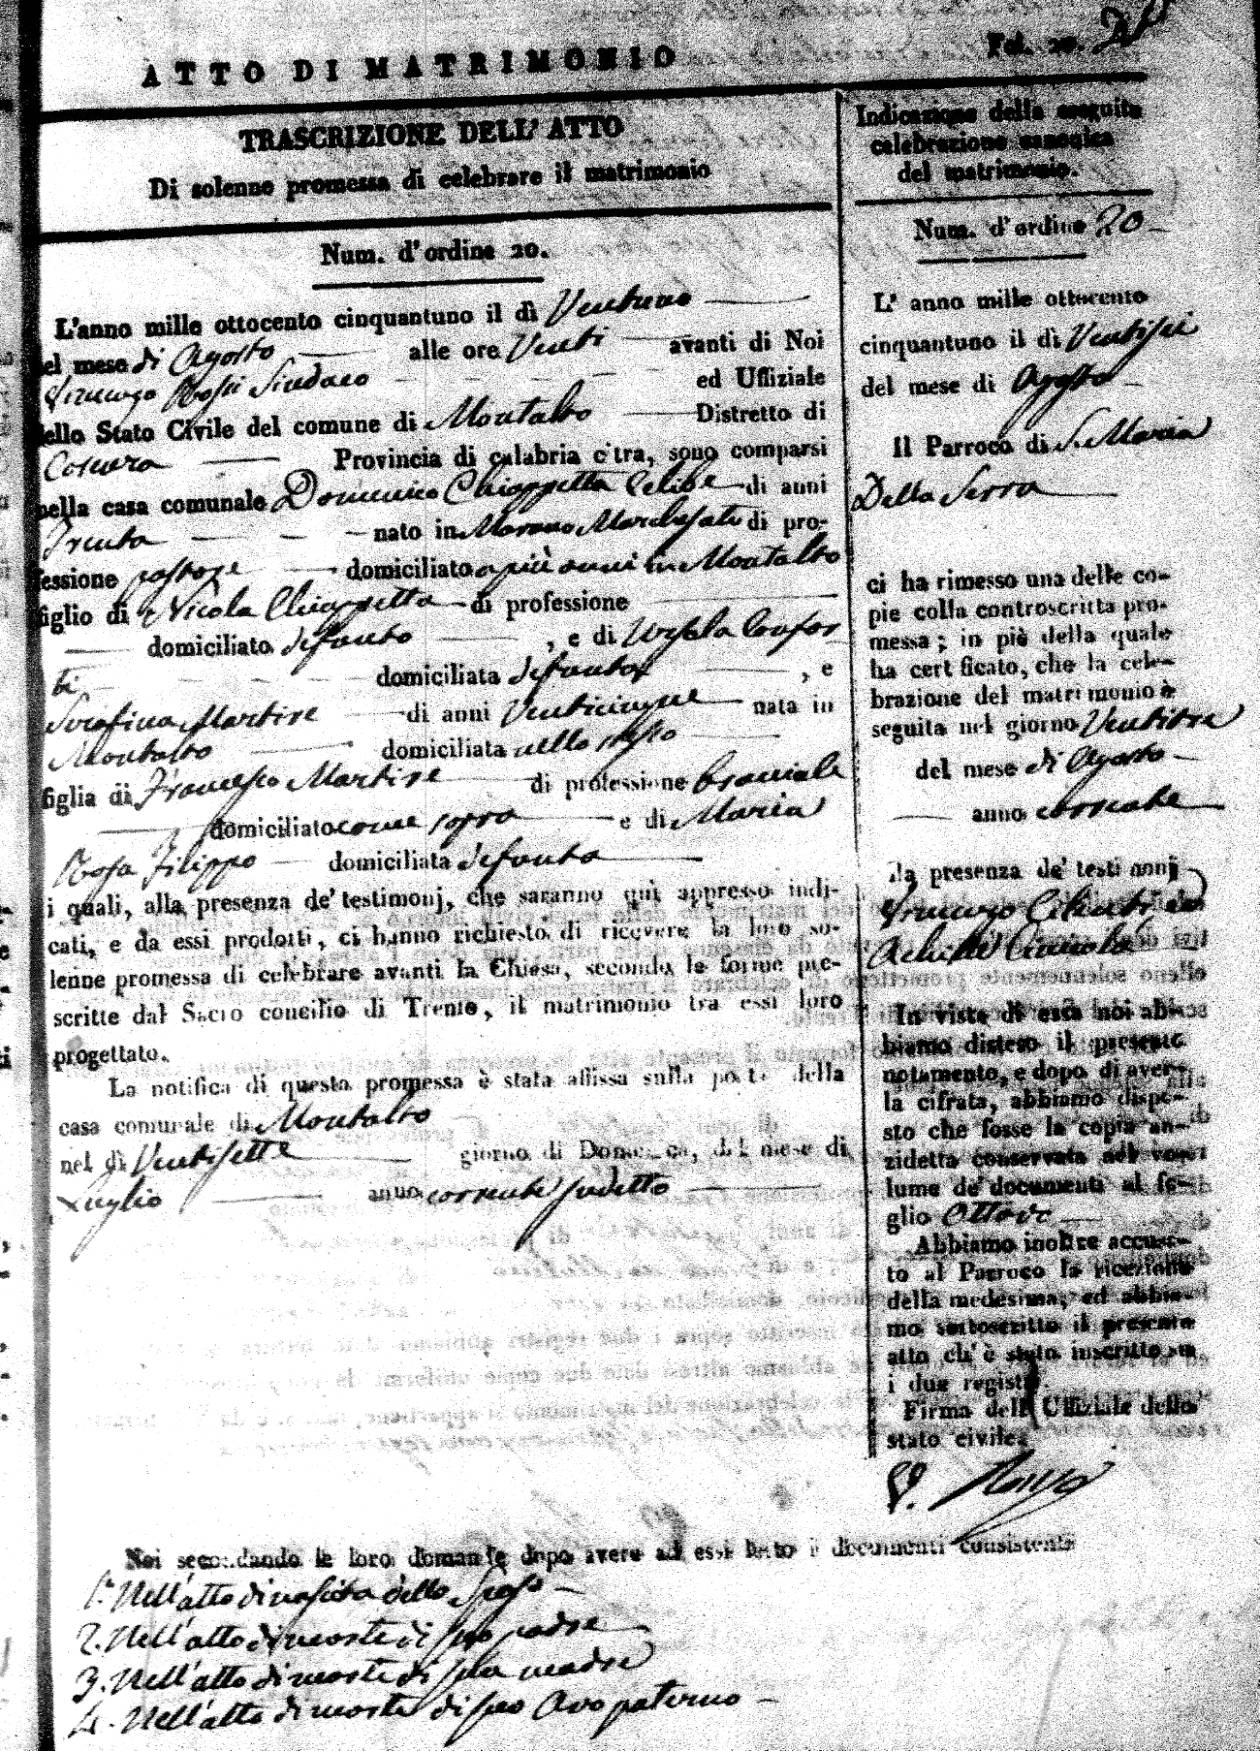 ATTO DI MATRIMONIO
Fol. 20.
TRASCRIZIONE DELL' ATTO
Di solenne promessa di celebrare il matrimonio
Num. d' ordine 20.
L'anno mille ottocento cinquantuno il dì Ventuno
del mese di Agosto alle ore Venti avanti di Noi
Vincenzo Rossi Sindaco ed Uffiziale
dello Stato Civile del comune di Montalto Distretto di
Cosenza Provincia di calabria citra, sono comparsi
nella casa comunale Domenico Chiappetta Celibe di anni
Trenta nato in Marano Marchesato di pro-
fessione pastore domiciliato a più anni in Montalto
figlio di Nicola Chiappetta di professione
domiciliato defonto , e di Orsola Confor
ti domiciliata defonta , e
Serafina Martire di anni Venticinque nata in
Montalto domiciliata nello stesso
figlia di Francesco Martire di professione Bracciale
domiciliato come sopra e di Maria
Rosa Filippo domiciliata defonta
i quali, alla presenza de' testimonj, che saranno quì appresso indi-
cati, e da essi prodotti, ci hanno richiesto di ricevere la loro so-
lenne promessa di celebrare avanti la Chiesa, secondo le forme pre-
scritte dal Sacro concilio di Trento, il matrimonio tra essi loro
progettato.
La notifica di questa promessa è stata affissa sulla porta della
casa comunale di Montalto
nel dì Ventisette giorno di Domenica, del mese di
Luglio anno corrente sudetto
Noi secondando le loro domande dopo avere ad essi letto i documenti consistenti
1. Nell'atto di nascita dello Sposo
2. Nell'atto di morte di suo padre
3. Nell'atto di morte di sua madre
4. Nell'atto di morte di suo Avo paterno
Indicazione della seguita
celebrazione canonica
del matrimonio.
Num. d' ordine 20
L' anno mille ottocento
cinquantuno il dì Ventisei
del mese di Agosto
Il Parroco di S. Maria
Della Serra
ci ha rimesso una delle co-
pie colla controscritta pro-
messa; in piè della quale
ha certificato, che la cele-
brazione del matrimonio è
seguita nel giorno Ventitre
del mese di Agosto
anno corrente
alla presenza de' testimonj
Vincenzo
Achille
In vista di essa noi ab-
biamo disteso il presente
notamento, e dopo di aver-
la cifrata, abbiamo dispo-
sto che fosse la copia an-
zidetta conservata nel vo-
lume de' documenti al fo-
glio Ottavo
Abbiamo inoltre accusa-
to al Parroco la ricezione
della medesima, ed abbia-
mo sottoscritto il presente
atto ch' è stato inscritto su
i due registri
Firma dell' Uffiziale dello
stato civile.
V. Rossi